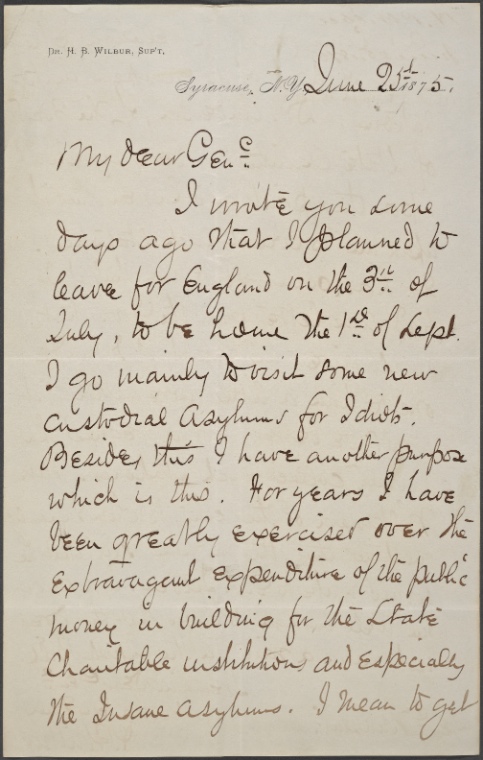 DR. H. B. WILBUR, SUP'T.
Syracuse, N.Y. June 25th 1875.
My dear Genl
I wrote you some
days ago that I planned to
leave for England on the 3rd of
July, to be home the 1st of Sept.
I go mainly to visit some new
custodial asylums for Idiots.
Besides this I have another purpose
which is this. For years I have
been greatly exercised over the
extravagant expenditure of the public
money in building for the State
Charitable institutions and especially
the Insane asylums. I mean to get